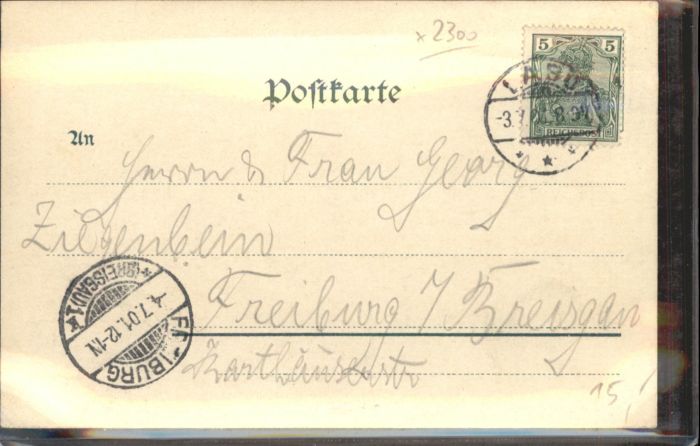 x 2300
5 5
REICHSPOST
-3.7. 8-9N
Postkarte
An
Herrn & Frau Georg
Ziegenbein
Freiburg i/ Breisgau
Karthäuserstr
FREIBURG
(BREISGAU) 1
-4.7.01.12-1N
15,-